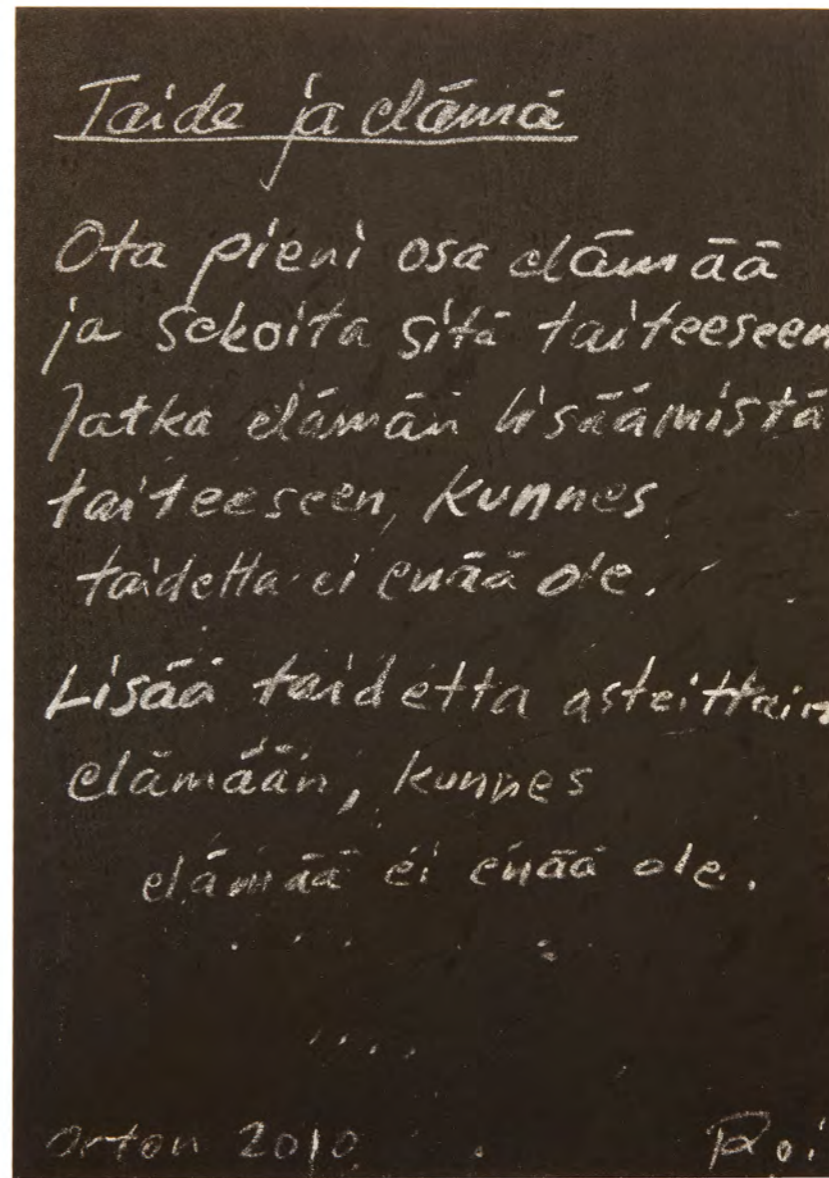 Taide ja elämä
Ota pieni osa elämää
ja sekoita sitä taiteeseen
Jatka elämän lisäämistä
taiteeseen, kunnes
taidetta ei enää ole.
Lisää taidetta asteittain
elämään, kunnes
elämää ei enää ole.
Orton 2010
Roi